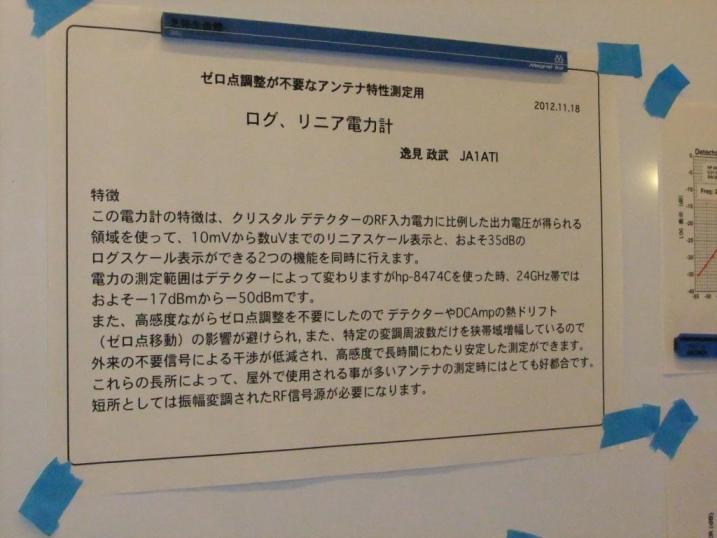 ゼロ点調整が不要なアンテナ特性測定用
2012.11.18
ログ、リニア電力計
逸見 政武 JA1ATI
特徴
この電力計の特徴は、クリスタル デテクターのRF入力電力に比例した出力電圧が得られる
領域を使って、10mVから数uVまでのリニアスケール表示と、およそ35dBの
ログスケール表示ができる2つの機能を同時に行えます。
電力の測定範囲はデテクターによって変わりますがhp-8474Cを使った時、24GHz帯では
およそー17dBmからー50dBmです。
また、高感度ながらゼロ点調整を不要にしたので デテクターやDCAmpの熱ドリフト
（ゼロ点移動）の影響が避けられ, また、特定の変調周波数だけを狭帯域増幅しているので
外来の不要信号による干渉が低減され、高感度で長時間にわたり安定した測定ができます。
これらの長所によって、屋外で使用される事が多いアンテナの測定時にはとても好都合です。
短所としては振幅変調されたRF信号源が必要になります。